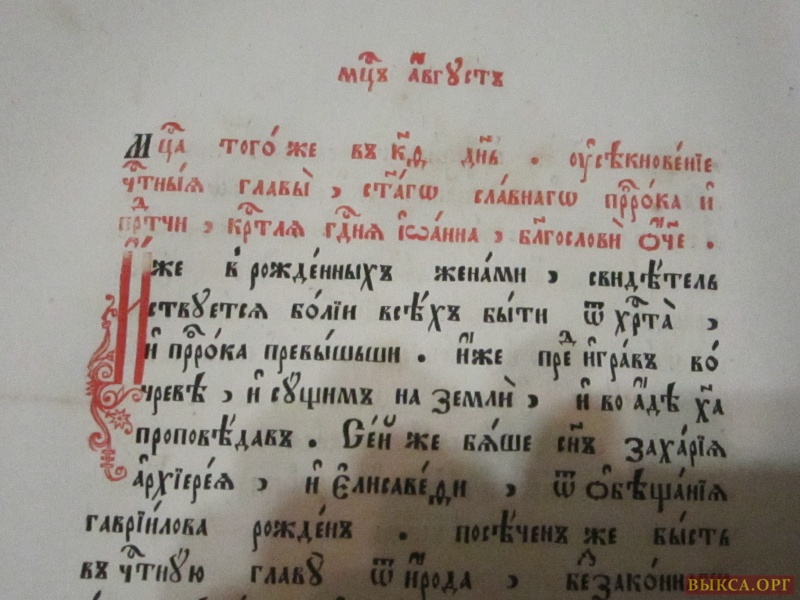 мцⷭ҇ъ а҆́вгꙋстъ
Мцⷭ҇а того́же въ к҃ѳ дн҃ь . ᲂу҆сѣкнове́нїе
чтⷭ҇ны́ѧ главы̀ , ст҃а́гѡ сла́внагѡ прⷪ҇ро́ка и҆
прⷣтчи , крⷭ҇тлѧ гдⷭ҇нѧ і҆ѡа́нна , блⷭ҇гословѝ ѻ҆́ч҃е .
И҆́же в̾ рожде́нныхъ жена́ми , свидѣ́тель
ствꙋетсѧ бо́лїи всѣ́хъ бы́ти ѿ хрⷭ҇та̀ ,
и҆ прⷪ҇ро́ка превы́шьши . и҆́же преⷣ и҆гра́въ во́
чревѣ , и҆ сꙋ́щимъ на землѝ , и҆ во а҆́дѣ хⷭ҇а̀
проповѣ́давъ . Се́й же бѧ́ше сн҃ъ заха́рїѧ
а҆рхїере́ѧ , и҆ є҆лисаве́ѳи , ѿ ѻ҆бѣща́нїѧ
гаврїи́лова рожде́нъ . посѣ́ченъ же бы́сть
въ чтⷭ҇нꙋ́ю главꙋ̀ ѿ и҆́рода , беззако́ннаго
ВЫКСА.ОРГ